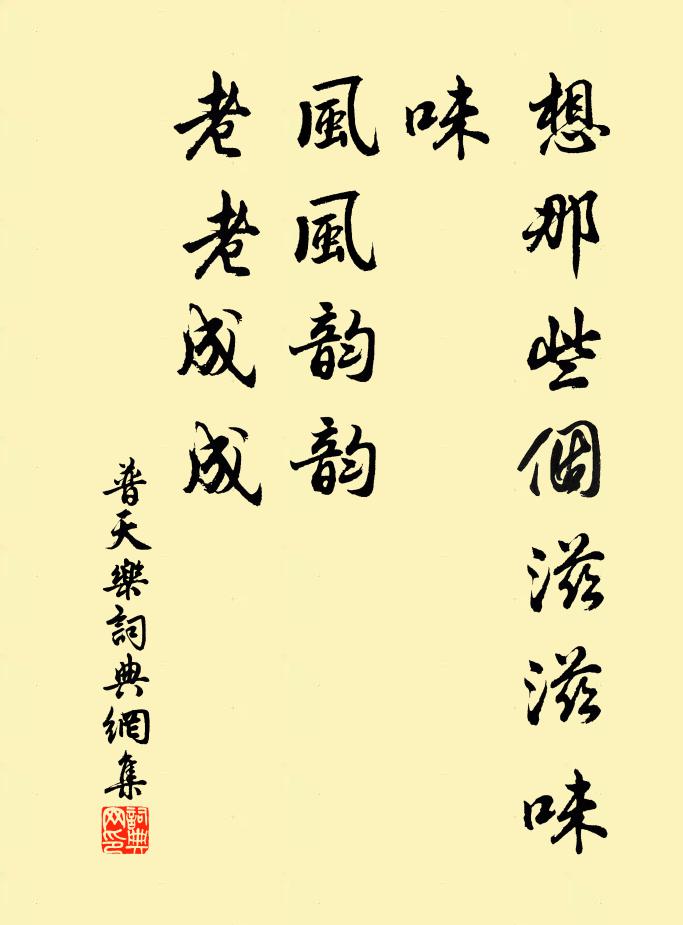 想那些個滋滋味
味
風風韵韵
老老成成
普天樂詞典網集
詞典
网印